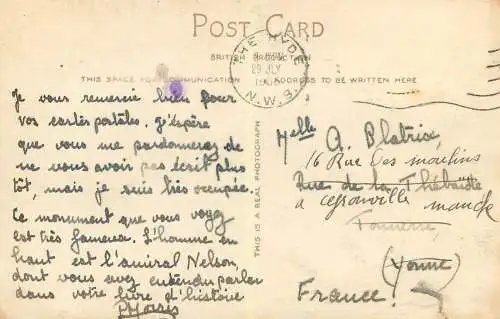 POST CARD
BRITISH PRODUCTION
THIS SPACE FOR COMMUNICATION ADDRESS TO BE WRITTEN HERE
THE HYDE
29 JLY
N.W.9.
Je vous remercie bien pour
vos cartes postales. J'éspère
que vous me pardonnerez de
ne vous avoir pas écrit plus
tôt, mais je suis très occupée.
Ce monument que vous voyez
est très fameux. L'homme en
haut est l'amiral Nelson
dont vous avez entendu parler
dans votre livre d'histoire
THIS IS A REAL PHOTOGRAPH
Melle A. Blatrix,
16 Rue des moulins
Rue de la Thébaïde
a manche
Tonnerre,
(Yonne)
France.